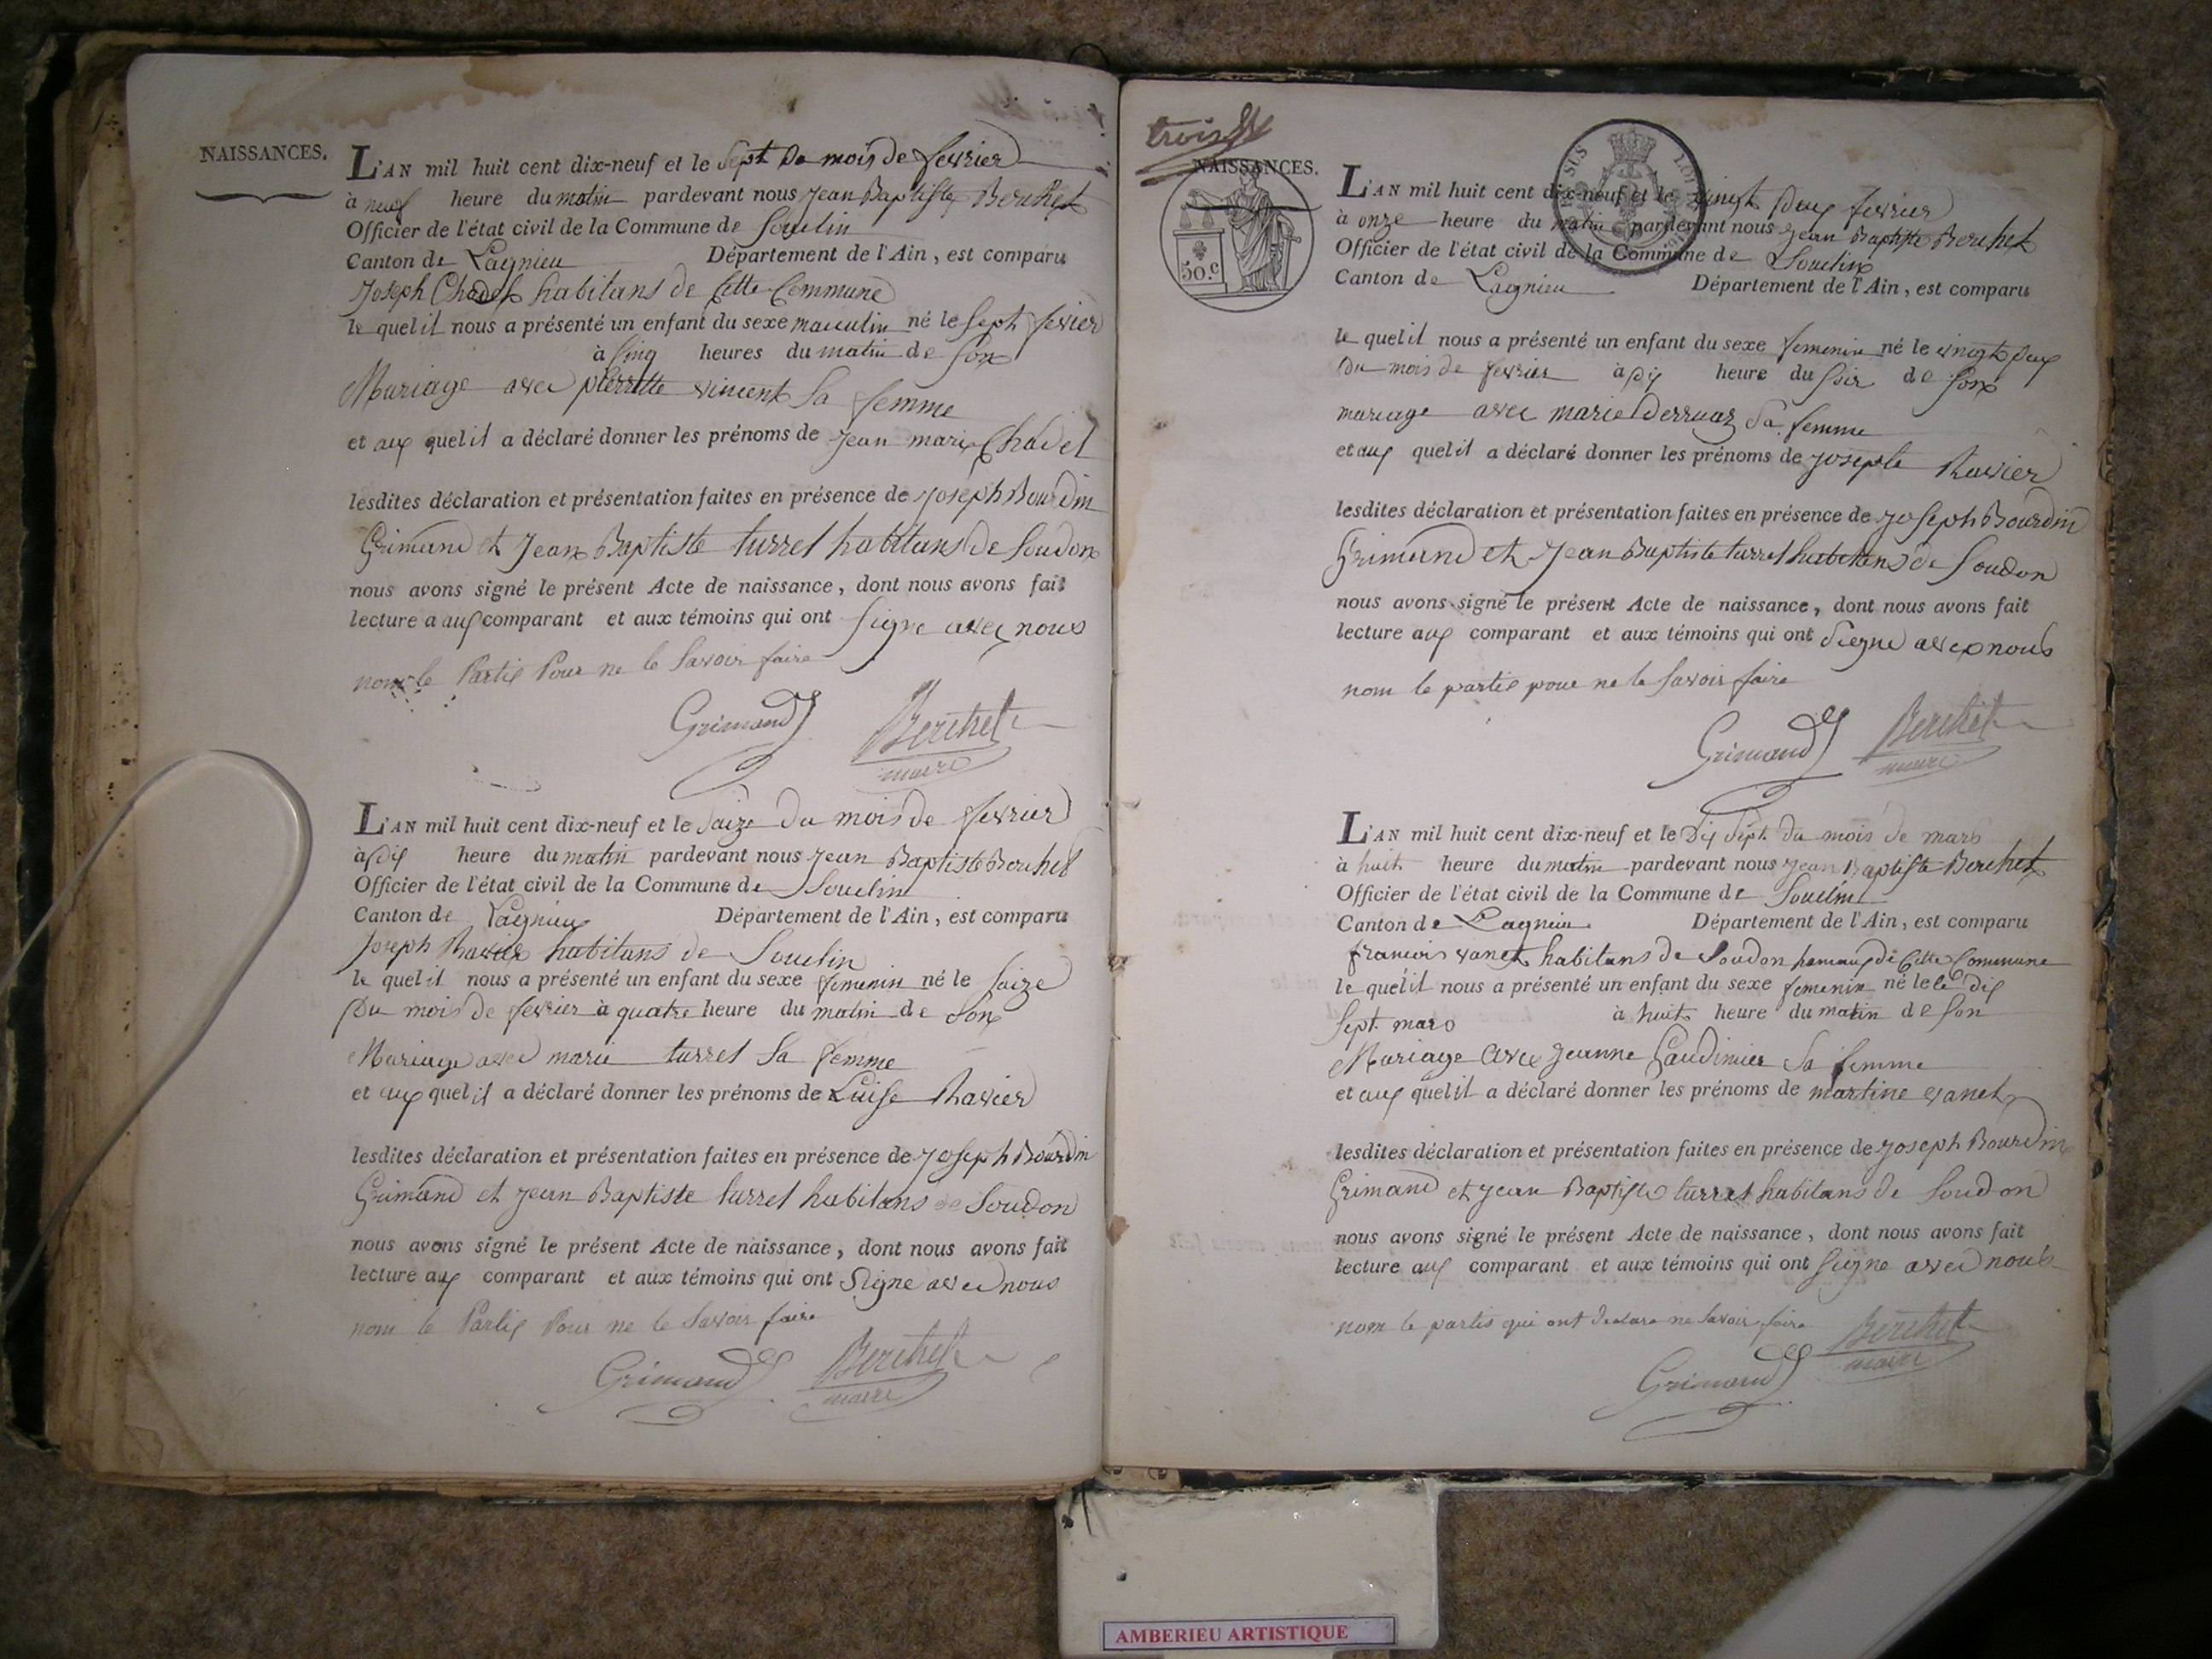 NAISSANCES.
L'AN mil huit cent dix-neuf et le Sept Du mois de fevrier
à neuf heure du matin pardevant nous Jean Baptiste Berthet
Officier de l'état civil de la Commune de Souclin
Canton de Lagnieu Département de l'Ain, est comparu
Joseph Chadel habitans de Cette Commune
le quel il nous a présenté un enfant du sexe masculin né le Sept fevrier
à Sinq heures du matin de Son
Mariage avec pierrette vincent Sa femme
et aux quel il a déclaré donner les prénoms de Jean marie Chadel
lesdites déclaration et présentation faites en présence de Joseph Bourdin
Grimand et Jean Baptiste turrel habitans de Soudon
nous avons signé le présent Acte de naissance, dont nous avons fait
lecture a aux comparant et aux témoins qui ont Signe avec nous
nom le Partis Pour ne le Savoir faire
Grimand Berthet
maire
L'AN mil huit cent dix-neuf et le Saize Du mois de fevrier
à dix heure du matin pardevant nous Jean Baptiste Berthet
Officier de l'état civil de la Commune de Souclin
Canton de Lagnieu Département de l'Ain, est comparu
Joseph Ravier habitans de Souclin
le quel il nous a présenté un enfant du sexe femenin né le Saize
Du mois de fevrier à quatre heure du matin de Son
Mariage avec marie turrel Sa femme
et aux quel il a déclaré donner les prénoms de Luise Ravier
lesdites déclaration et présentation faites en présence de Joseph Bourdin
Grimand et Jean Baptiste turrel habitans de Soudon
nous avons signé le présent Acte de naissance, dont nous avons fait
lecture aux comparant et aux témoins qui ont Signe avec nous
nom le Partis Pour ne le Savoir faire
Grimand Berthet
maire
trois
NAISSANCES.
50.c
L'AN mil huit cent dix-neuf et le vingt Deux fevrier
à onze heure du matin pardevant nous Jean Baptiste Berthet
Officier de l'état civil de la Commune de Souclin
Canton de Lagnieu Département de l'Ain, est comparu
le quel il nous a présenté un enfant du sexe femenin né le vingt Deux
Du mois de fevrier à dix heure du Soir de Son
mariage avec marie Derruaz Sa femme
et aux quel il a déclaré donner les prénoms de Josephe Ravier
lesdites déclaration et présentation faites en présence de Joseph Bourdin
Grimand et Jean Baptiste turrel habitans de Soudon
nous avons signé le présent Acte de naissance, dont nous avons fait
lecture aux comparant et aux témoins qui ont Signe avec nous
nom le partis pour ne le Savoir faire
Grimand Berthet
maire
L'AN mil huit cent dix-neuf et le Dix Sept du mois de mars
à huit heure du matin pardevant nous Jean Baptiste Berthet
Officier de l'état civil de la Commune de Souclin
Canton de Lagnieu Département de l'Ain, est comparu
francois vanet habitans de Soudon hamaux de Cette Commune
le quel il nous a présenté un enfant du sexe femenin né le le dix
Sept mars à huit heure du matin de Son
Mariage avec Jeanne Sa femme
et aux quel il a déclaré donner les prénoms de martine vanet
lesdites déclaration et présentation faites en présence de Joseph Bourdin
Grimand et Jean Baptiste turrel habitans de Soudon
nous avons signé le présent Acte de naissance, dont nous avons fait
lecture aux comparant et aux témoins qui ont Signe avec nous
nom le partis qui ont declare ne Savoir faire
Berthet
maire
Grimand
AMBERIEU ARTISTIQUE